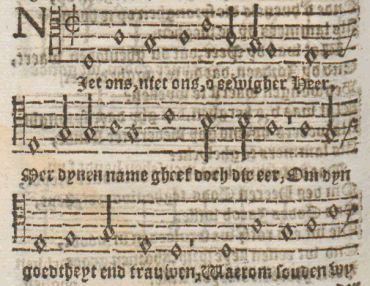 NIet ons, niet ons, o eewigher Heer,
Mer dynen name gheef doch die eer, Om dyn
goedtheyt end trauwen, Waerom souden wy